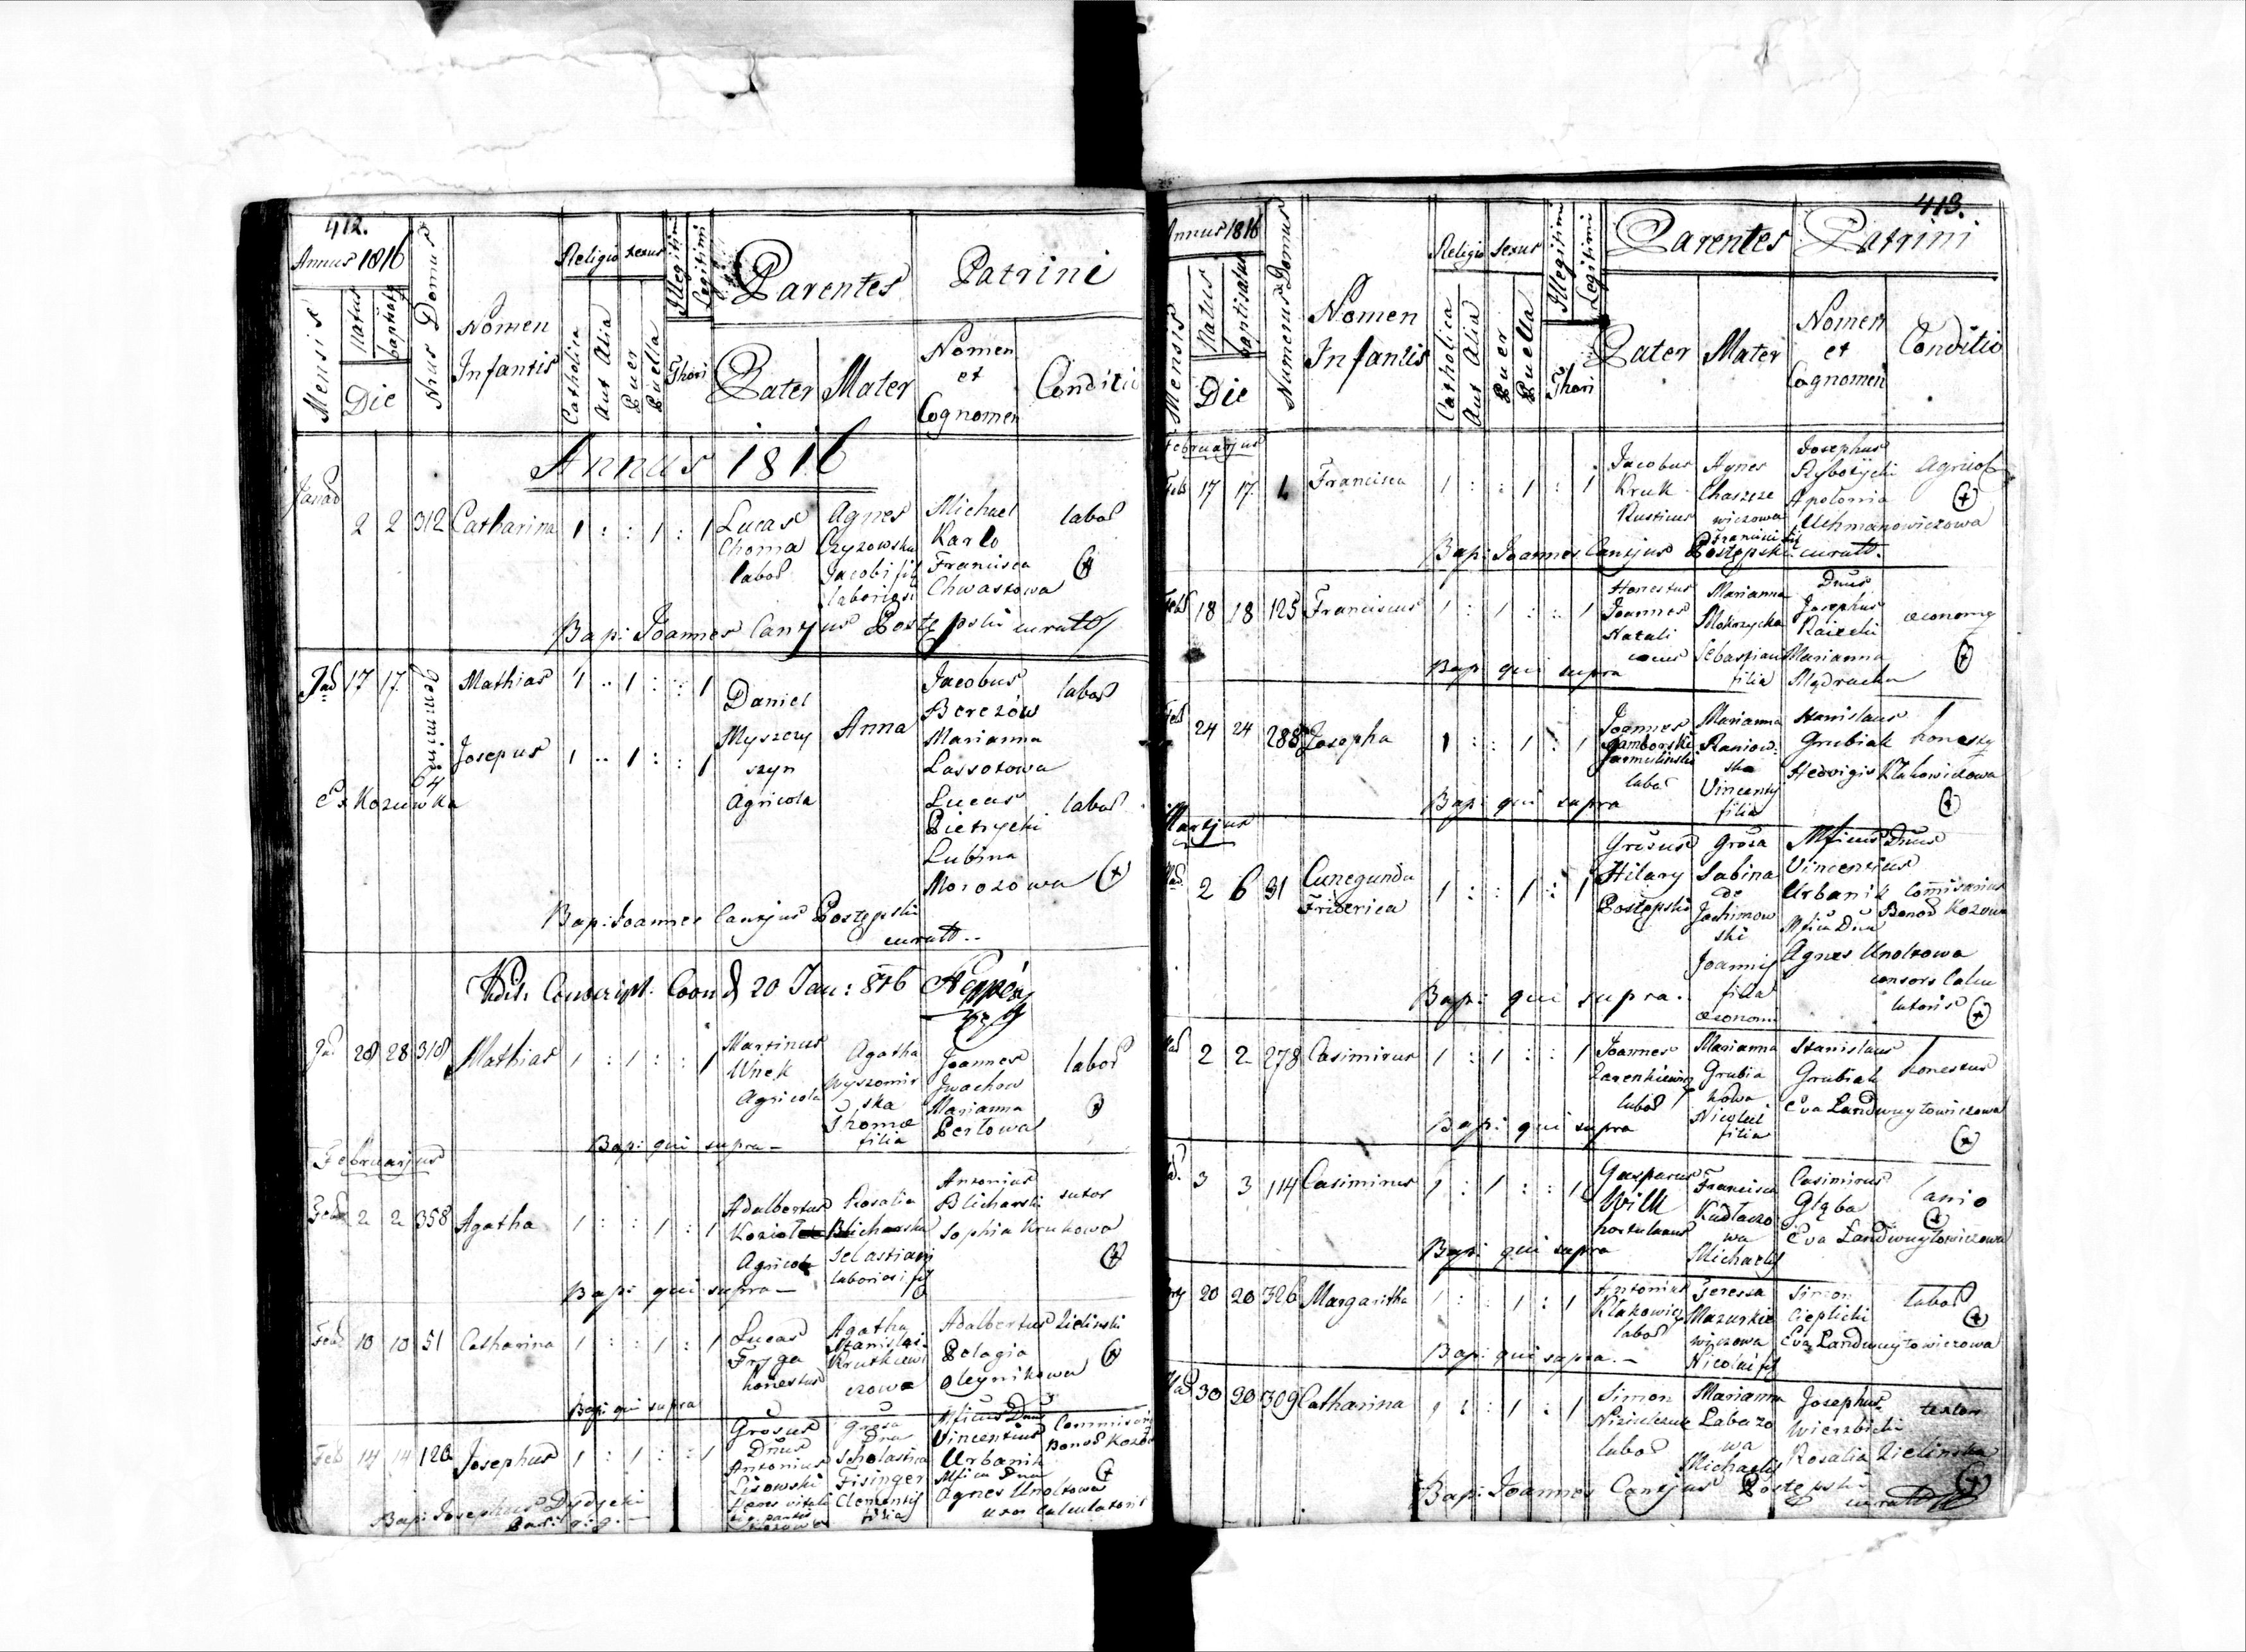 412.
Annus 1816
Mensis
Natus
baptisatq
Die
Nrus Domus
Nomen
Infantis
Religio
Catholica
Aut Alia
sexus
Puer
Puella
Illegitimi
Legitimi
Thori
Parentes
Pater
Mater
Patrini
Nomen
et
Cognomen
Conditio
Annus 1816
2 2 312 Catharina 1 : : 1 : 1
Lucas
Choma
labor
Agnes
Czyzowska
Jacobi fil
laboriosi
Michael
Karlo
Francisca
Chwastowa
labor
Bap: Joannes Cantius Postępski curatt
17 17 Gemmini
Mathias 1 .. 1 : : 1
Josepus 1 .. 1 : : 1
64
Ex Kozuwka
Daniel
Myszczy
szyn
Agricola
Anna
Jacobus
Berezów
Marianna
Lassotowa
labor
Lucas
Pietrycki
Lubina
Morozówa
labor
Bap: Joannes Cantjus Postępski
curatt..
20 Jan: 816
28 28 318 Mathias 1 : 1 : : 1
Martinus
Wnek
Agricola
Agatha
Wyszomir
ska
Thomæ
filia
Joannes
Iwachow
Marianna
Pertowa
labor
Bap: qui supra —
Februarjus
2 2 358 Agatha 1 : : 1 : 1
Adalbertus
Agricola
Rosalia
Blicharska
Sebastiani
laboriosi fil
Antonius
Blicharski
Sophia Krukowa
sutor
Bap: qui supra —
Feb 10 10 51 Catharina 1 : : 1 : 1
Lucas
Fryga
honestus
Agatha
Stanislai
Krutkiewi
czowa
Adalbertus Zielinski
Pelagia
Oleynikowa
Bap: qui supra
Feb 14 14 120 Josephus 1 : 1 : : 1
Grosus
Dnus
Antonius
Lisowski
Grosa
Dna
Scholastica
Fisinger
Clementis
filia
Mficus Dnus
Vincentius
Urbanik
Mfica Dna
Agnes Unoltowa
uxor Calculatoris
Bap: Josephus Dydycki
413.
Annus 1816
Mensis
Natus
baptisatus
Die
Numerus Domus
Nomen
Infantis
Religio
Catholica
Aut Alia
sexus
Puer
Puella
Illegitimi
Legitimi
Thori
Parentes
Pater
Mater
Patrini
Nomen
et
Cognomen
Conditio
Februarjus
Feb 17 17 Francisca 1 : : 1 : 1
Jacobus
Kruk
Rusticus
Agnes
Chaszcze
wiczowa
Francisci fil
Josephus
Rybotycki
Apolonia
Uchmanowiczowa
Agricol
Bap: Joannes Cantjus Postępski curatt.
Feb 18 18 125 Franciscus 1 : 1 : : 1
Honestus
Joannes
Natali
Marianna
Mokrzycka
Sebastiani
filia
Dnus
Josephus
Raizcki
Marianna
Mądracka
œconomq
Bap: qui supra
Feb 24 24 288 Josepha 1 : : 1 : 1
Joannes
Jamborski
Jarmulinski
labor
Marianna
Raniow:
ska
Vincenty
filia
Stanislaus
Grubiak
Hedvigis Kłakowiczowa
honestq
Bap: qui supra
Martjus
2 6 31 Cunegunda
Friderica 1 : : 1 : 1
Grosus
Hilary
Postępski
Grosa
Sabina
de
Jachimow
ski
Joannis
filia
œconomi
Mficus Dnus
Vincentius
Urbanik Comisarius
Bonor Kozowa
Mfica Dna
Agnes Unoltowa
consors Calcu
latoris
Bap: qui supra.
2 2 278 Casimirus 1 : 1 : : 1
Joannes
Zarenkiewicz
labor
Marianna
Grubia
kowa
Nicolai
filia
Stanislaus
Grubiak
Eva Landwuytowiczowa
honestus
Bap: qui supra
3 3 114 Casimirus 1 : 1 : : 1
Gasparus
Wilk
hortulanus
Francisca
Kudłaczo
wa
Michaelis
Casimirus
Głąba
Eva Landwuytowiczowa
lanio
Bap: qui supra
20 20 326 Margaritha 1 : : 1 : 1
Antonius
Kłakowicz
labor
Teressa
Mazurkie
wiczowa
Nicolai fil
Simon
Cieplicki
Eva Landwuytowiczowa
labor
Bap: qui supra. —
30 20 309 Catharina 1 : : 1 : 1
Simon
labor
Marianna
Labazo
wa
Michaelis
Josephus
Wierzbicki
Rosalia Zielinska
textor
Bap: Joannes Cantjus Postępski
curatt